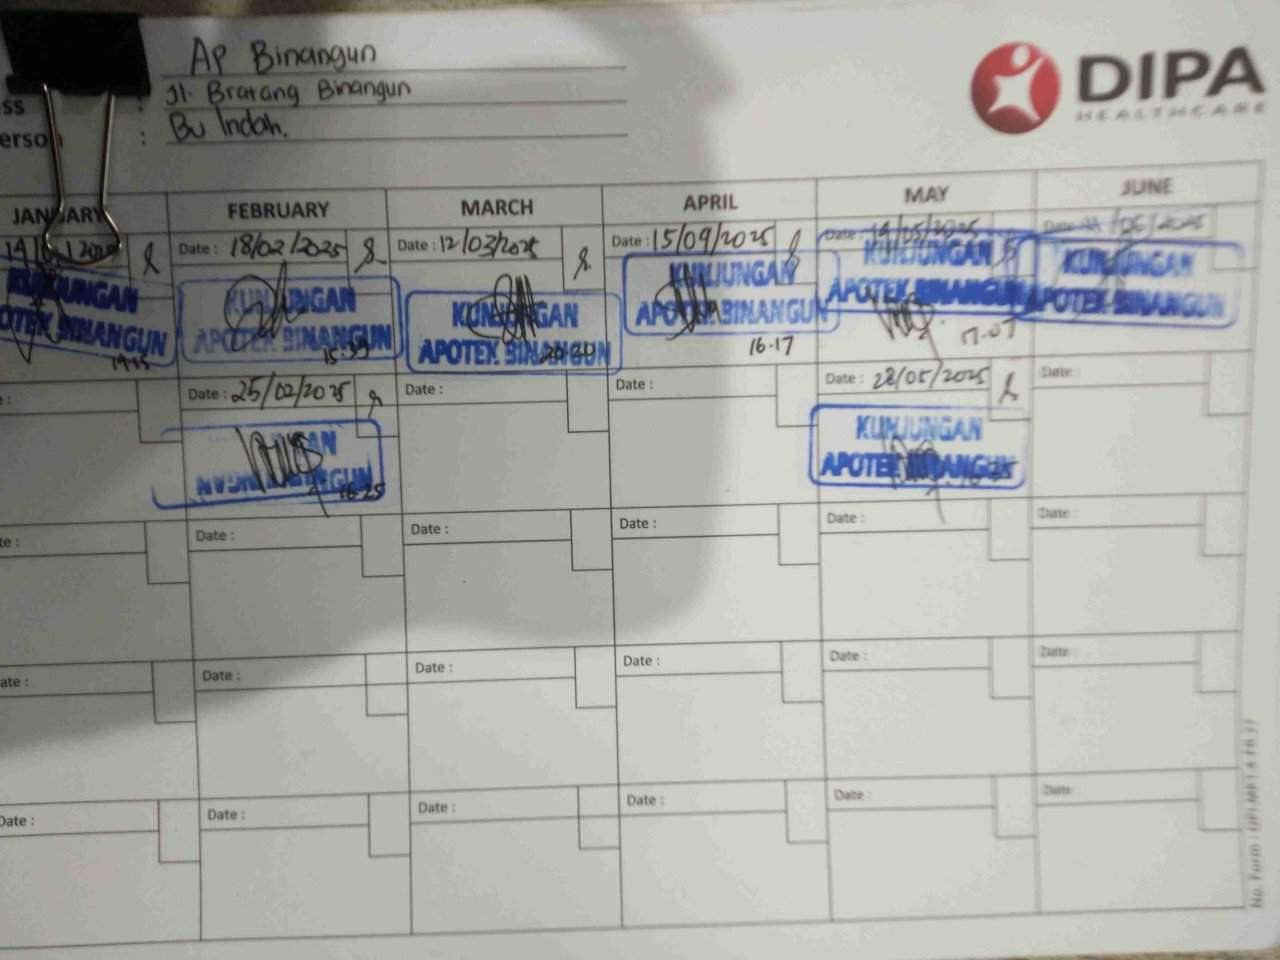 AP Binangun
ss : Jl. Bratang Binangun
erson : Bu Indah.
DIPA
HEALTHCARE
JANUARY FEBRUARY MARCH APRIL MAY JUNE
Date : 18/02/2025 Date : 12/03/2025 Date : 15/04/2025 Date : 14/05/2025 Date : /06/2025
KUNJUNGAN KUNJUNGAN KUNJUNGAN KUNJUNGAN KUNJUNGAN KUNJUNGAN
APOTEK BINANGUN APOTEK BINANGUN APOTEK BINANGUN APOTEK BINANGUN APOTEK BINANGUN APOTEK BINANGUN
19.15 15.35 20.20 16.17 17.07
: Date : 25/02/2025 Date : Date : Date : 28/05/2025 Date :
KUNJUNGAN
APOTEK BINANGUN
16.25
te : Date : Date : Date : Date : Date :
ate : Date : Date : Date : Date : Date :
Date : Date : Date : Date : Date : Date :
No. Form :